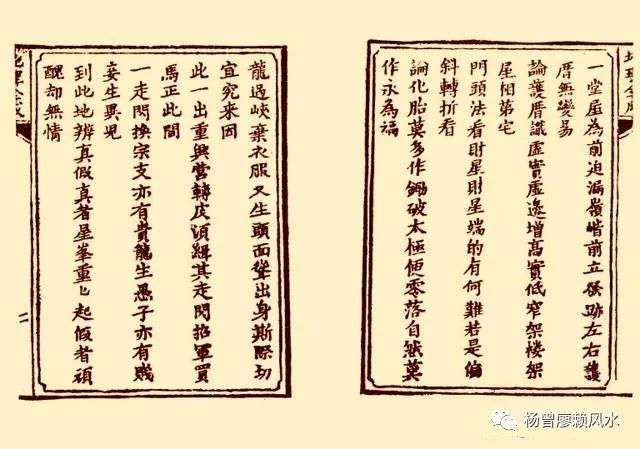 一堂屋為前迫漏嶺前立跡左右護
厝無變易
論護厝議虛實虛邊增高實低窄架楼架
屋相第宅
門頭法看財星財星端的有何難若是偏
斜轉折看
論化胎莫多作鋤破太極便零落自然莫
作永為福
龍過峽棄衣服又生頭面聳出身斯際切
宜究来因
此一出重興营轉皮湏緝其走閃招軍買
馬正此間
一走閃換宗支亦有貴龍生愚子亦有賤
妾生異児
到此地辨真假真者星峯重〻起假者頑
醜却無情
二
杨曾廖赖风水